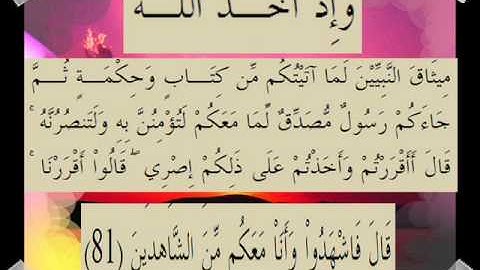 وَإِذْ أَخَـــذَ اللَّهُ
مِيثَاقَ النَّبِيِّيْنَ لَمَا آتَيْتُكُم مِّن كِتَـــابٍ وَحِكْمَـــةٍ ثُـــمَّ
جَاءَكُمْ رَسُولٌ مُّصَدِّقٌ لِّمَا مَعَكُمْ لَتُؤْمِنُنَّ بِهِ وَلَتَنصُرُنَّهُ ۚ
قَالَ أَأَقْرَرْتُمْ وَأَخَذْتُمْ عَلَى ذَلِكُمْ إِصْرِي ۖ قَالُواْ أَقْرَرْنَا ۚ
قَالَ فَاشْهَدُواْ وَأَنَاْ مَعَكُم مِّنَ الشَّاهِدِينَ (81)